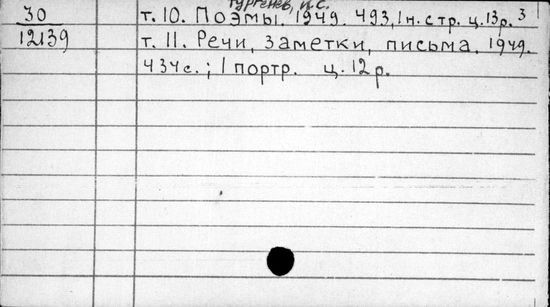 Тургенев, И.С.
3
30 т. 10. Поэмы. 1949. 493, 1 н. стр. ц. 13р.
12139 т. 11. Речи, заметки, письма. 1949.
434 с.; 1 портр. ц. 12 р.